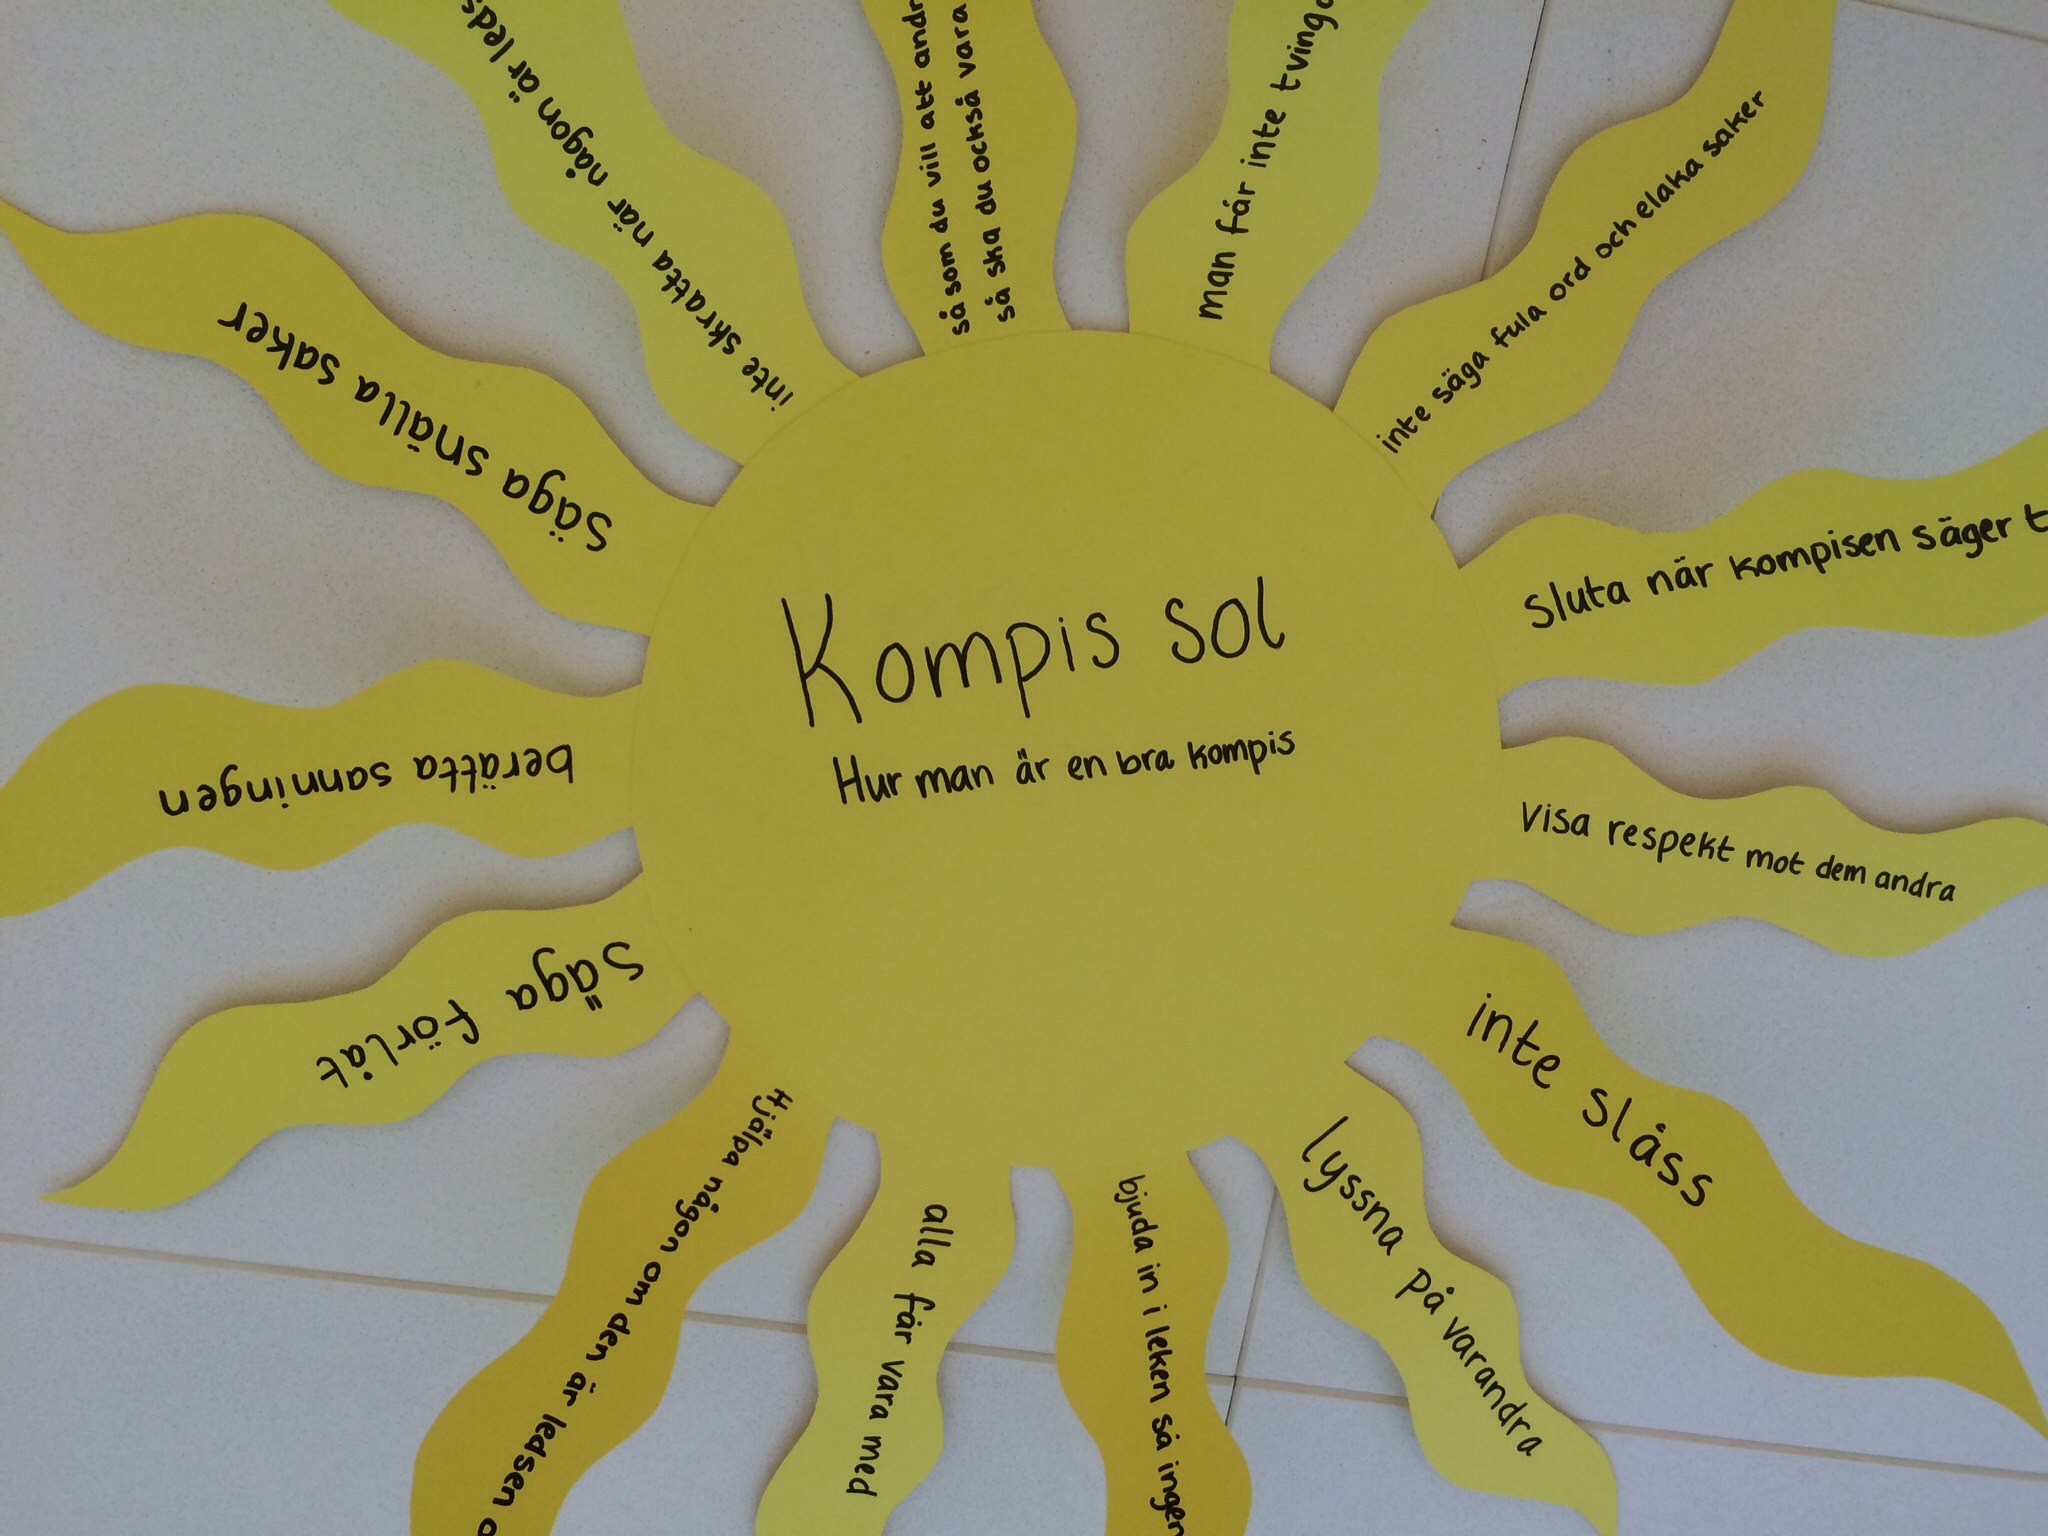 Kompis sol
Hur man är en bra kompis
så som du vill att
så ska du också vara
man får inte
inte säga fula ord och elaka saker
Sluta när kompisen säger
Visa respekt mot dem andra
inte slåss
lyssna på varandra
bjuda in i leken så ingen
alla får vara med
Hjälpa någon om den är ledsen
Säga förlåt
berätta sanningen
Säga snälla saker
inte skratta när någon är